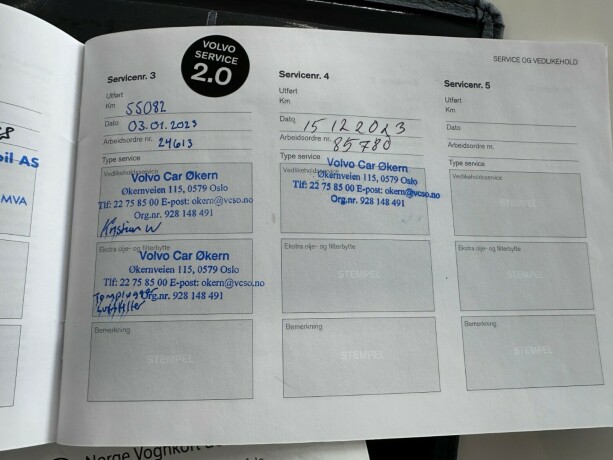 SERVICE OG VEDLIKEHOLD
VOLVO
SERVICE
2.0
Servicenr. 3
Utført
Km 55082
Dato 03.01.2023
Arbeidsordre nr. 24613
Type service
Vedlikeholdsservice
Volvo Car Økern
Økernveien 115, 0579 Oslo
Tlf: 22 75 85 00 E-post: okern@vcso.no
Org.nr. 928 148 491
Kristian W
Ekstra olje- og filterbytte
Volvo Car Økern
Økernveien 115, 0579 Oslo
Tlf: 22 75 85 00 E-post: okern@vcso.no
Org.nr. 928 148 491
Luftfilter
Bemerkning
STEMPEL
Servicenr. 4
Utført
Km
Dato 15 12 2023
Arbeidsordre nr. 85780
Type service
Vedlikeholdsservice
Volvo Car Økern
Økernveien 115, 0579 Oslo
Tlf: 22 75 85 00 E-post: okern@vcso.no
Org.nr. 928 148 491
Ekstra olje- og filterbytte
STEMPEL
Bemerkning
STEMPEL
Servicenr. 5
Utført
Km
Dato
Arbeidsordre nr.
Type service
Vedlikeholdsservice
STEMPEL
Ekstra olje- og filterbytte
STEMPEL
Bemerkning
STEMPEL
bil AS
MVA
Norge Vognkort